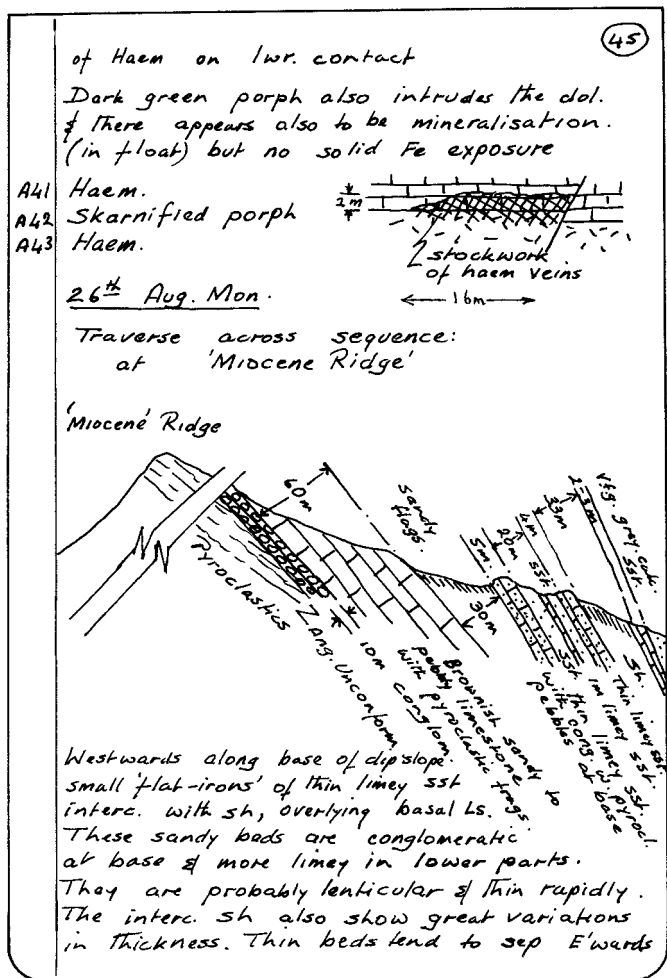 45
of Haem on lwr. contact
Dark green porph also intrudes the dol.
& there appears also to be mineralisation.
(in float) but no solid Fe exposure
A41 Haem.
A42 Skarnified porph
A43 Haem.
2m
stockwork
of haem veins
16m
26th Aug. Mon.
Traverse across sequence:
at 'Miocene Ridge'
'Miocene' Ridge
Pyroclastics
Ang. Unconform
10m conglom.
60m
Brownish sandy to
pebbly limestone
with pyroclastic frags.
Sandy
flags.
30m
5m
20m
4m
sst.
33m
2-3m
vfg. grey calc.
sst.
sst thin limey sst.
with cong. w. pyrocl.
pebbles at base
1m limey sst.
Thin limey sst.
Sh.
Westwards along base of dip slope
small 'flat-irons' of thin limey sst
interc. with sh, overlying basal Ls.
These sandy beds are conglomeratic
at base & more limey in lower parts.
They are probably lenticular & thin rapidly.
The interc. sh also show great variations
in thickness. Thin beds tend to sep E'wards